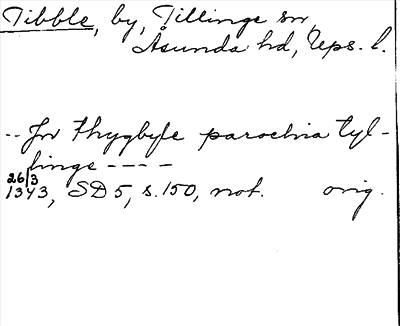 Tibble, by, Tillinge sn,
Åsunda hd, Upps. l.
-- Jn thygbyle parochia tyl-
linge ----
26/3
1343, SD 5, s. 150, not. orig.